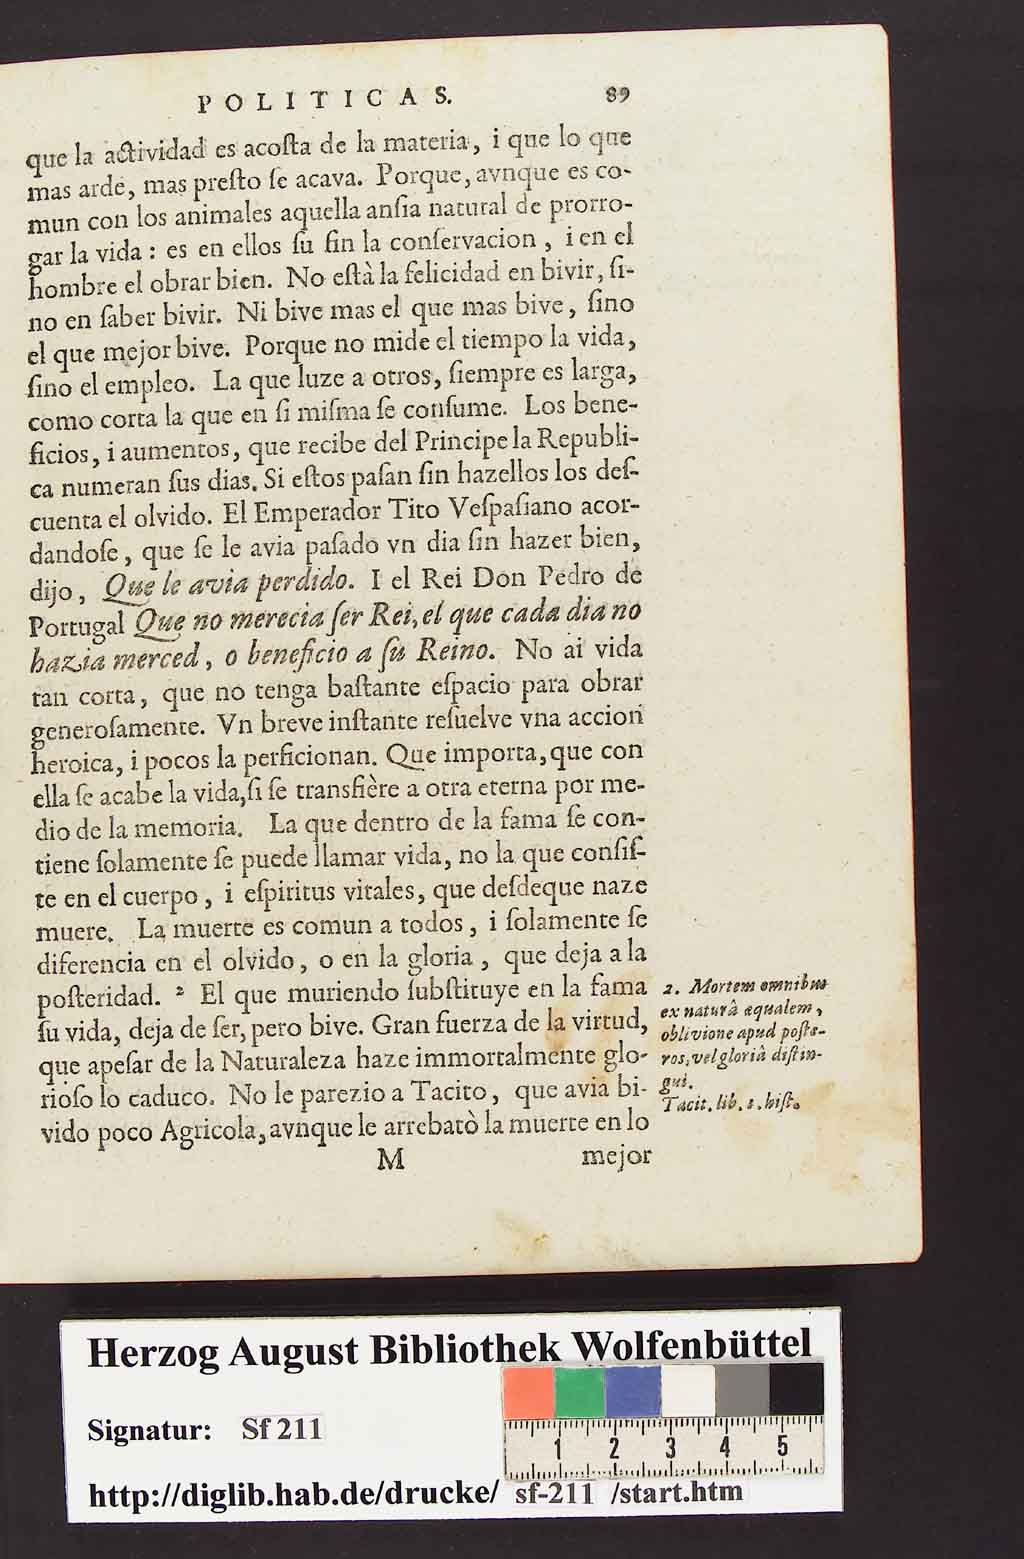 POLITICAS. 89
que la actividad es acoſta de la materia, i que lo que
mas arde, mas preſto ſe acava. Porque, avnque es co-
mun con los animales aquella anſia natural de prorro-
gar la vida: es en ellos ſu fin la conſervacion, i en el
hombre el obrar bien. No eſtà la felicidad en bivir, ſi-
no en ſaber bivir. Ni bive mas el que mas bive, ſino
el que mejor bive. Porque no mide el tiempo la vida,
ſino el empleo. La que luze a otros, ſiempre es larga,
como corta la que en ſi miſma ſe conſume. Los bene-
ficios, i aumentos, que recibe del Principe la Republi-
ca numeran ſus dias. Si eſtos paſan ſin hazellos los deſ-
cuenta el olvido. El Emperador Tito Veſpaſiano acor-
dandoſe, que ſe le avia paſado vn dia ſin hazer bien,
dijo, Que le avia perdido. I el Rei Don Pedro de
Portugal Que no merecia ſer Rei, el que cada dia no
hazia merced, o beneficio a ſu Reino. No ai vida
tan corta, que no tenga baſtante eſpacio para obrar
generoſamente. Vn breve inſtante reſuelve vna accion
heroica, i pocos la perficionan. Que importa, que con
ella ſe acabe la vida, ſi ſe transfière a otra eterna por me-
dio de la memoria. La que dentro de la fama ſe con-
tiene ſolamente ſe puede llamar vida, no la que conſiſ-
te en el cuerpo, i eſpiritus vitales, que deſdeque naze
muere. La muerte es comun a todos, i ſolamente ſe
diferencia en el olvido, o en la gloria, que deja a la
poſteridad. 2 El que muriendo ſubſtituye en la fama
ſu vida, deja de ſer, pero bive. Gran fuerza de la virtud,
que apeſar de la Naturaleza haze immortalmente glo-
rioſo lo caduco. No le parezio a Tacito, que avia bi-
vido poco Agricola, avnque le arrebatò la muerte en lo
M mejor
2. Mortem omnibus
ex naturâ æqualem,
oblivione apud poſte-
ros, vel gloriâ diſtin-
gui.
Tacit. lib. 1. hiſt.
Herzog August Bibliothek Wolfenbüttel
Signatur: Sf 211
1 2 3 4 5
http://diglib.hab.de/drucke/ sf-211 /start.htm